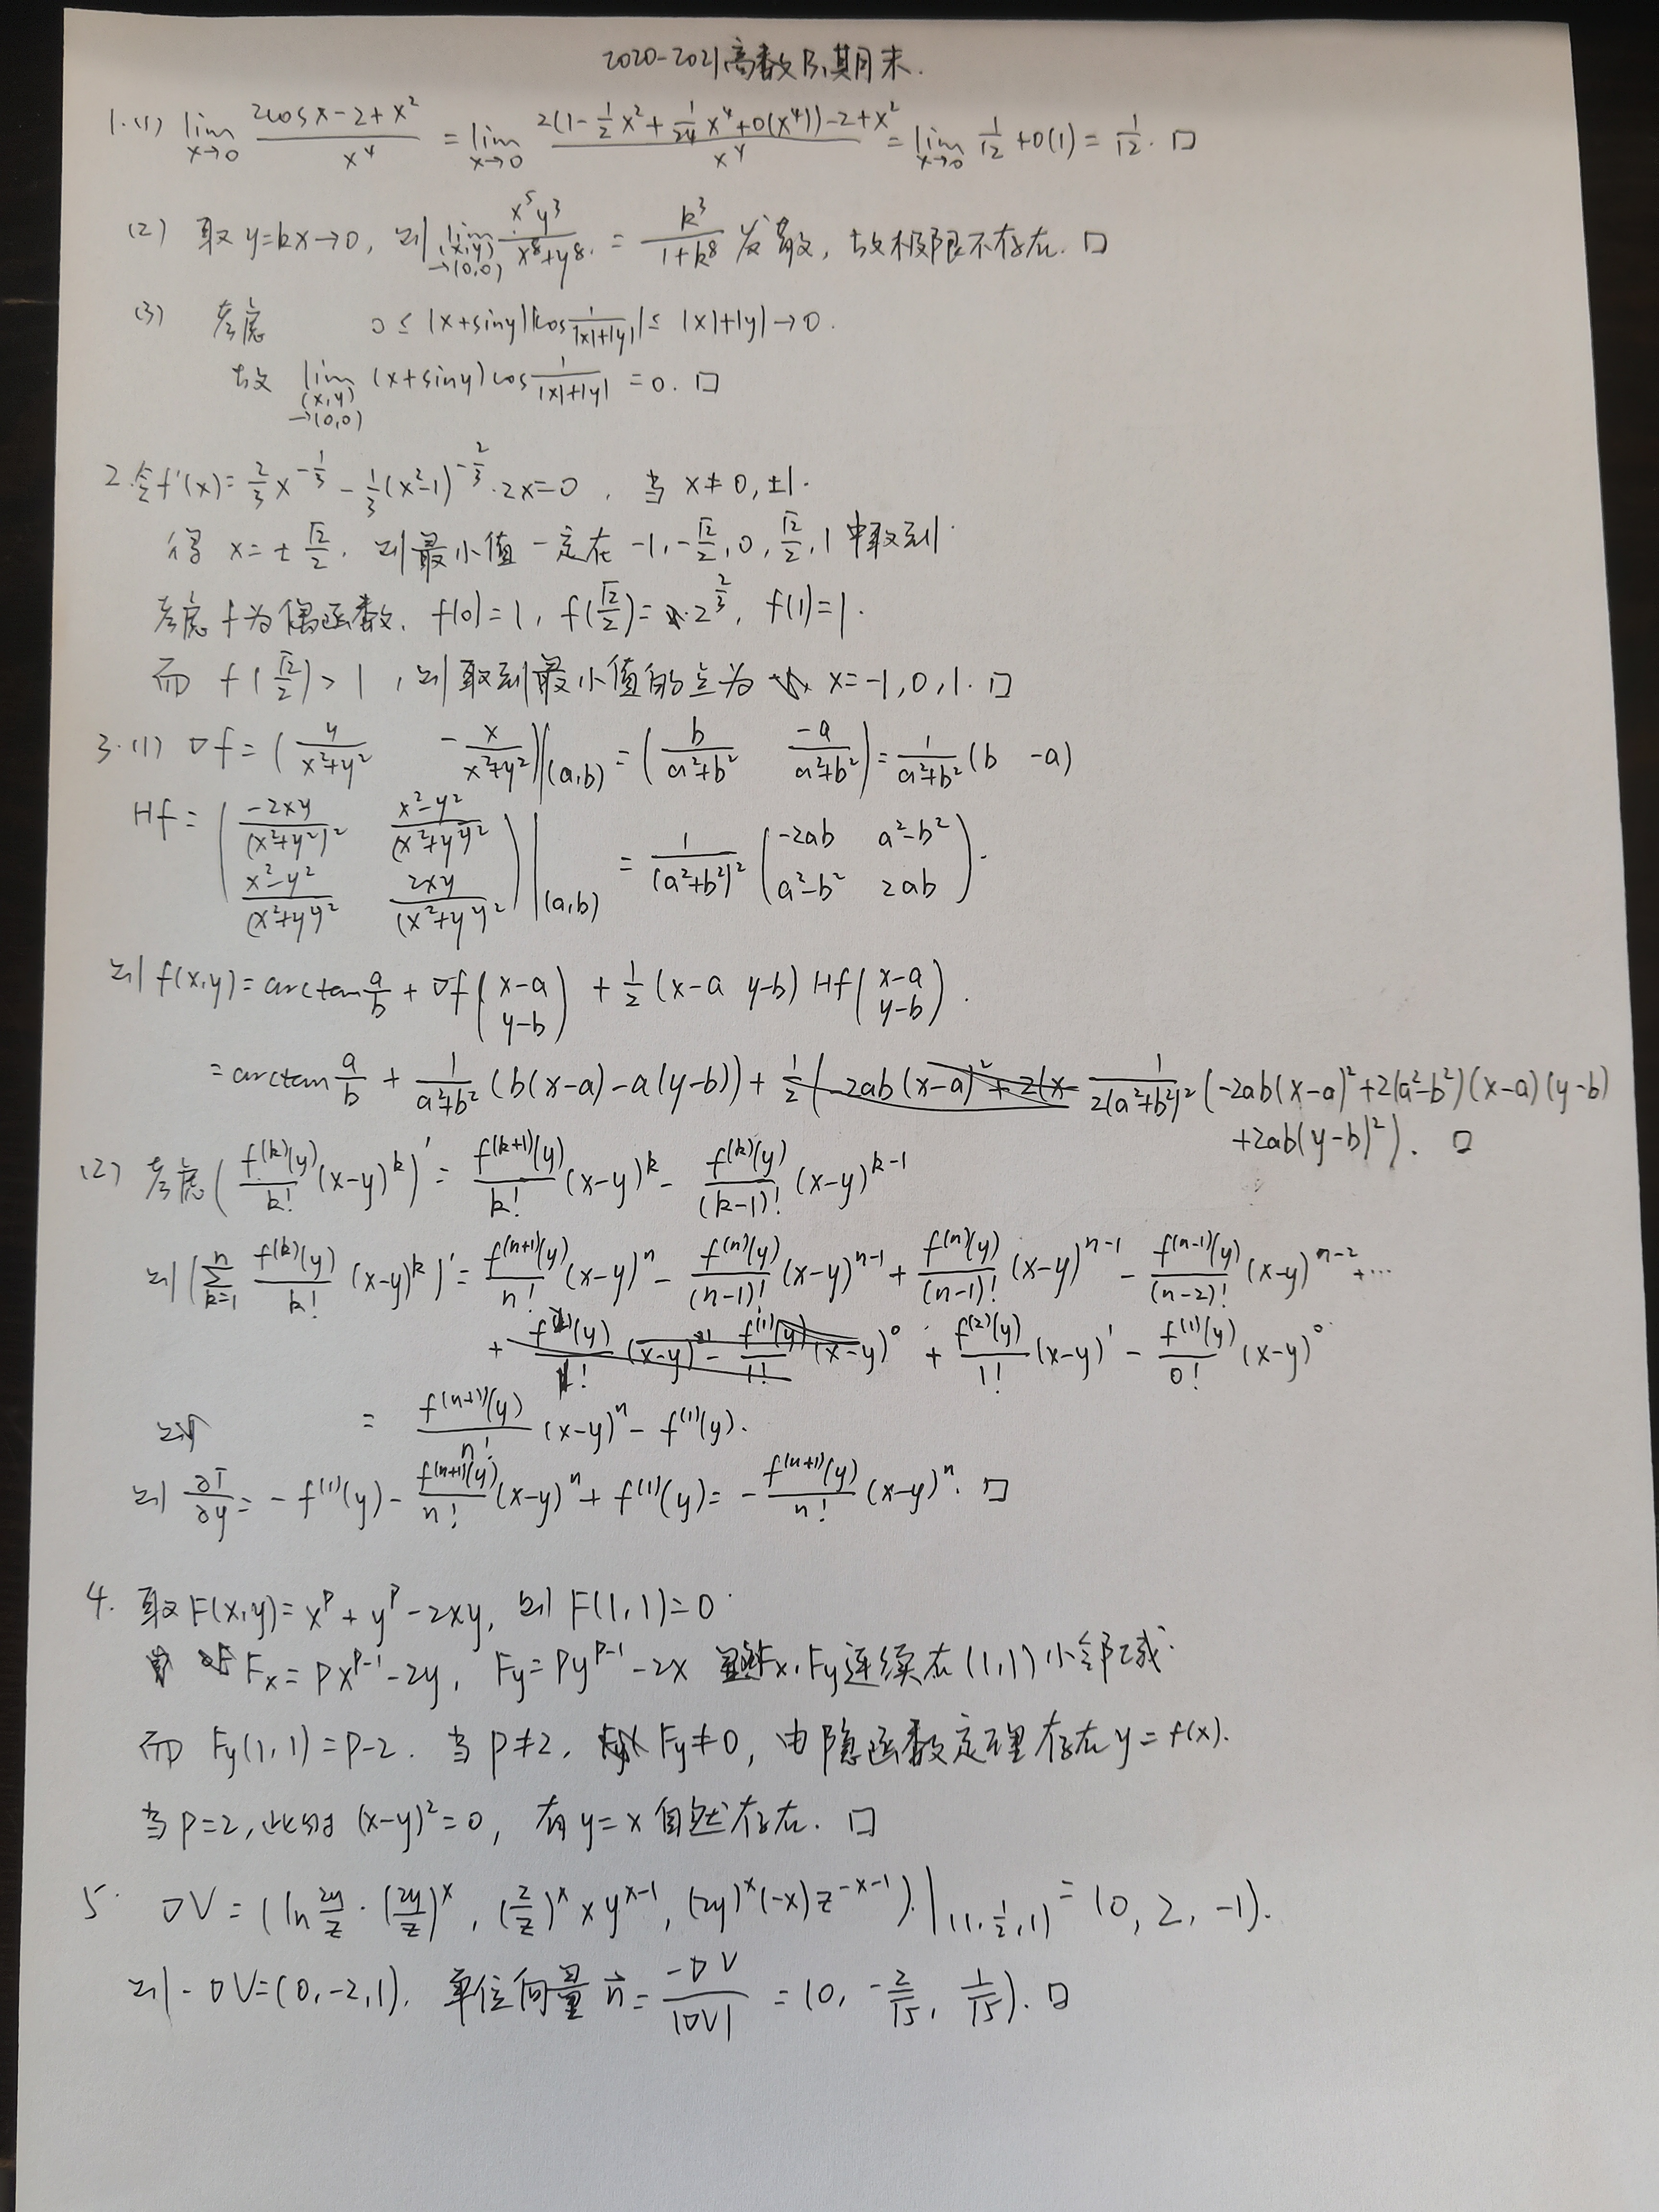 2020-2021高数B1期末.
1.(1) lim_{x→0} (2cosx-2+x²)/x⁴ = lim_{x→0} (2(1-½x²+(1/24)x⁴+o(x⁴))-2+x²)/x⁴ = lim_{x→0} 1/12+o(1) = 1/12. □
(2) 取y=kx→0, 则 lim_{(x,y)→(0,0)} x⁵y³/(x⁸+y⁸) = k³/(1+k⁸) 发散, 故极限不存在. □
(3) 考虑 0≤|x+siny||cos 1/(|x|+|y|)|≤|x|+|y|→0.
故 lim_{(x,y)→(0,0)} (x+siny)cos 1/(|x|+|y|) = 0. □
2.令f'(x)=(2/3)x^{-1/3}-(1/3)(x²-1)^{-2/3}·2x=0, 当 x≠0,±1.
得 x=±√2/2. 则最小值一定在 -1,-√2/2,0,√2/2,1 中取到.
考虑f为偶函数. f(0)=1, f(√2/2)=2^{2/3}, f(1)=1.
而 f(√2/2)>1, 则取到最小值的点为 x=-1,0,1. □
3.(1) ∇f=(y/(x²+y²) -x/(x²+y²))|(a,b) = (b/(a²+b²) -a/(a²+b²)) = 1/(a²+b²) (b -a)
Hf = (-2xy/(x²+y²)² (x²-y²)/(x²+y²)² ; (x²-y²)/(x²+y²)² 2xy/(x²+y²)²)|(a,b) = 1/(a²+b²)² (-2ab a²-b² ; a²-b² 2ab).
则 f(x,y)=arctan a/b + ∇f(x-a ; y-b) + ½(x-a y-b) Hf(x-a ; y-b).
=arctan a/b + 1/(a²+b²) (b(x-a)-a(y-b)) + 1/(2(a²+b²)²) (-2ab(x-a)²+2(a²-b²)(x-a)(y-b)
+2ab(y-b)²). □
(2) 考虑(f^{(k)}(y)/k! (x-y)^k)' = f^{(k+1)}(y)/k! (x-y)^k - f^{(k)}(y)/(k-1)! (x-y)^{k-1}
则(∑_{k=1}^{n} f^{(k)}(y)/k! (x-y)^k)' = f^{(n+1)}(y)/n! (x-y)^n - f^{(n)}(y)/(n-1)! (x-y)^{n-1} + f^{(n)}(y)/(n-1)! (x-y)^{n-1} - f^{(n-1)}(y)/(n-2)! (x-y)^{n-2}+…
+ f^{(2)}(y)/1! (x-y)^1 - f^{(1)}(y)/0! (x-y)^0
= f^{(n+1)}(y)/n! (x-y)^n - f^{(1)}(y).
则 ∂T/∂y = -f^{(1)}(y) - f^{(n+1)}(y)/n! (x-y)^n + f^{(1)}(y) = -f^{(n+1)}(y)/n! (x-y)^n. □
4. 取F(x,y)=x^p+y^p-2xy, 则 F(1,1)=0.
F_x=px^{p-1}-2y, F_y=py^{p-1}-2x F_x,F_y连续在(1,1)小邻域.
而 F_y(1,1)=p-2. 当 p≠2, F_y≠0, 由隐函数定理存在y=f(x).
当p=2,此时 (x-y)²=0, 有y=x自然存在. □
5. ∇V=(ln 2y/z·(2y/z)^x, (2/z)^x xy^{x-1}, (2y)^x(-x)z^{-x-1}).|(1,½,1) = (0,2,-1).
则-∇V=(0,-2,1). 单位向量 n⃗=-∇V/|∇V| = (0, -2/√5, 1/√5). □